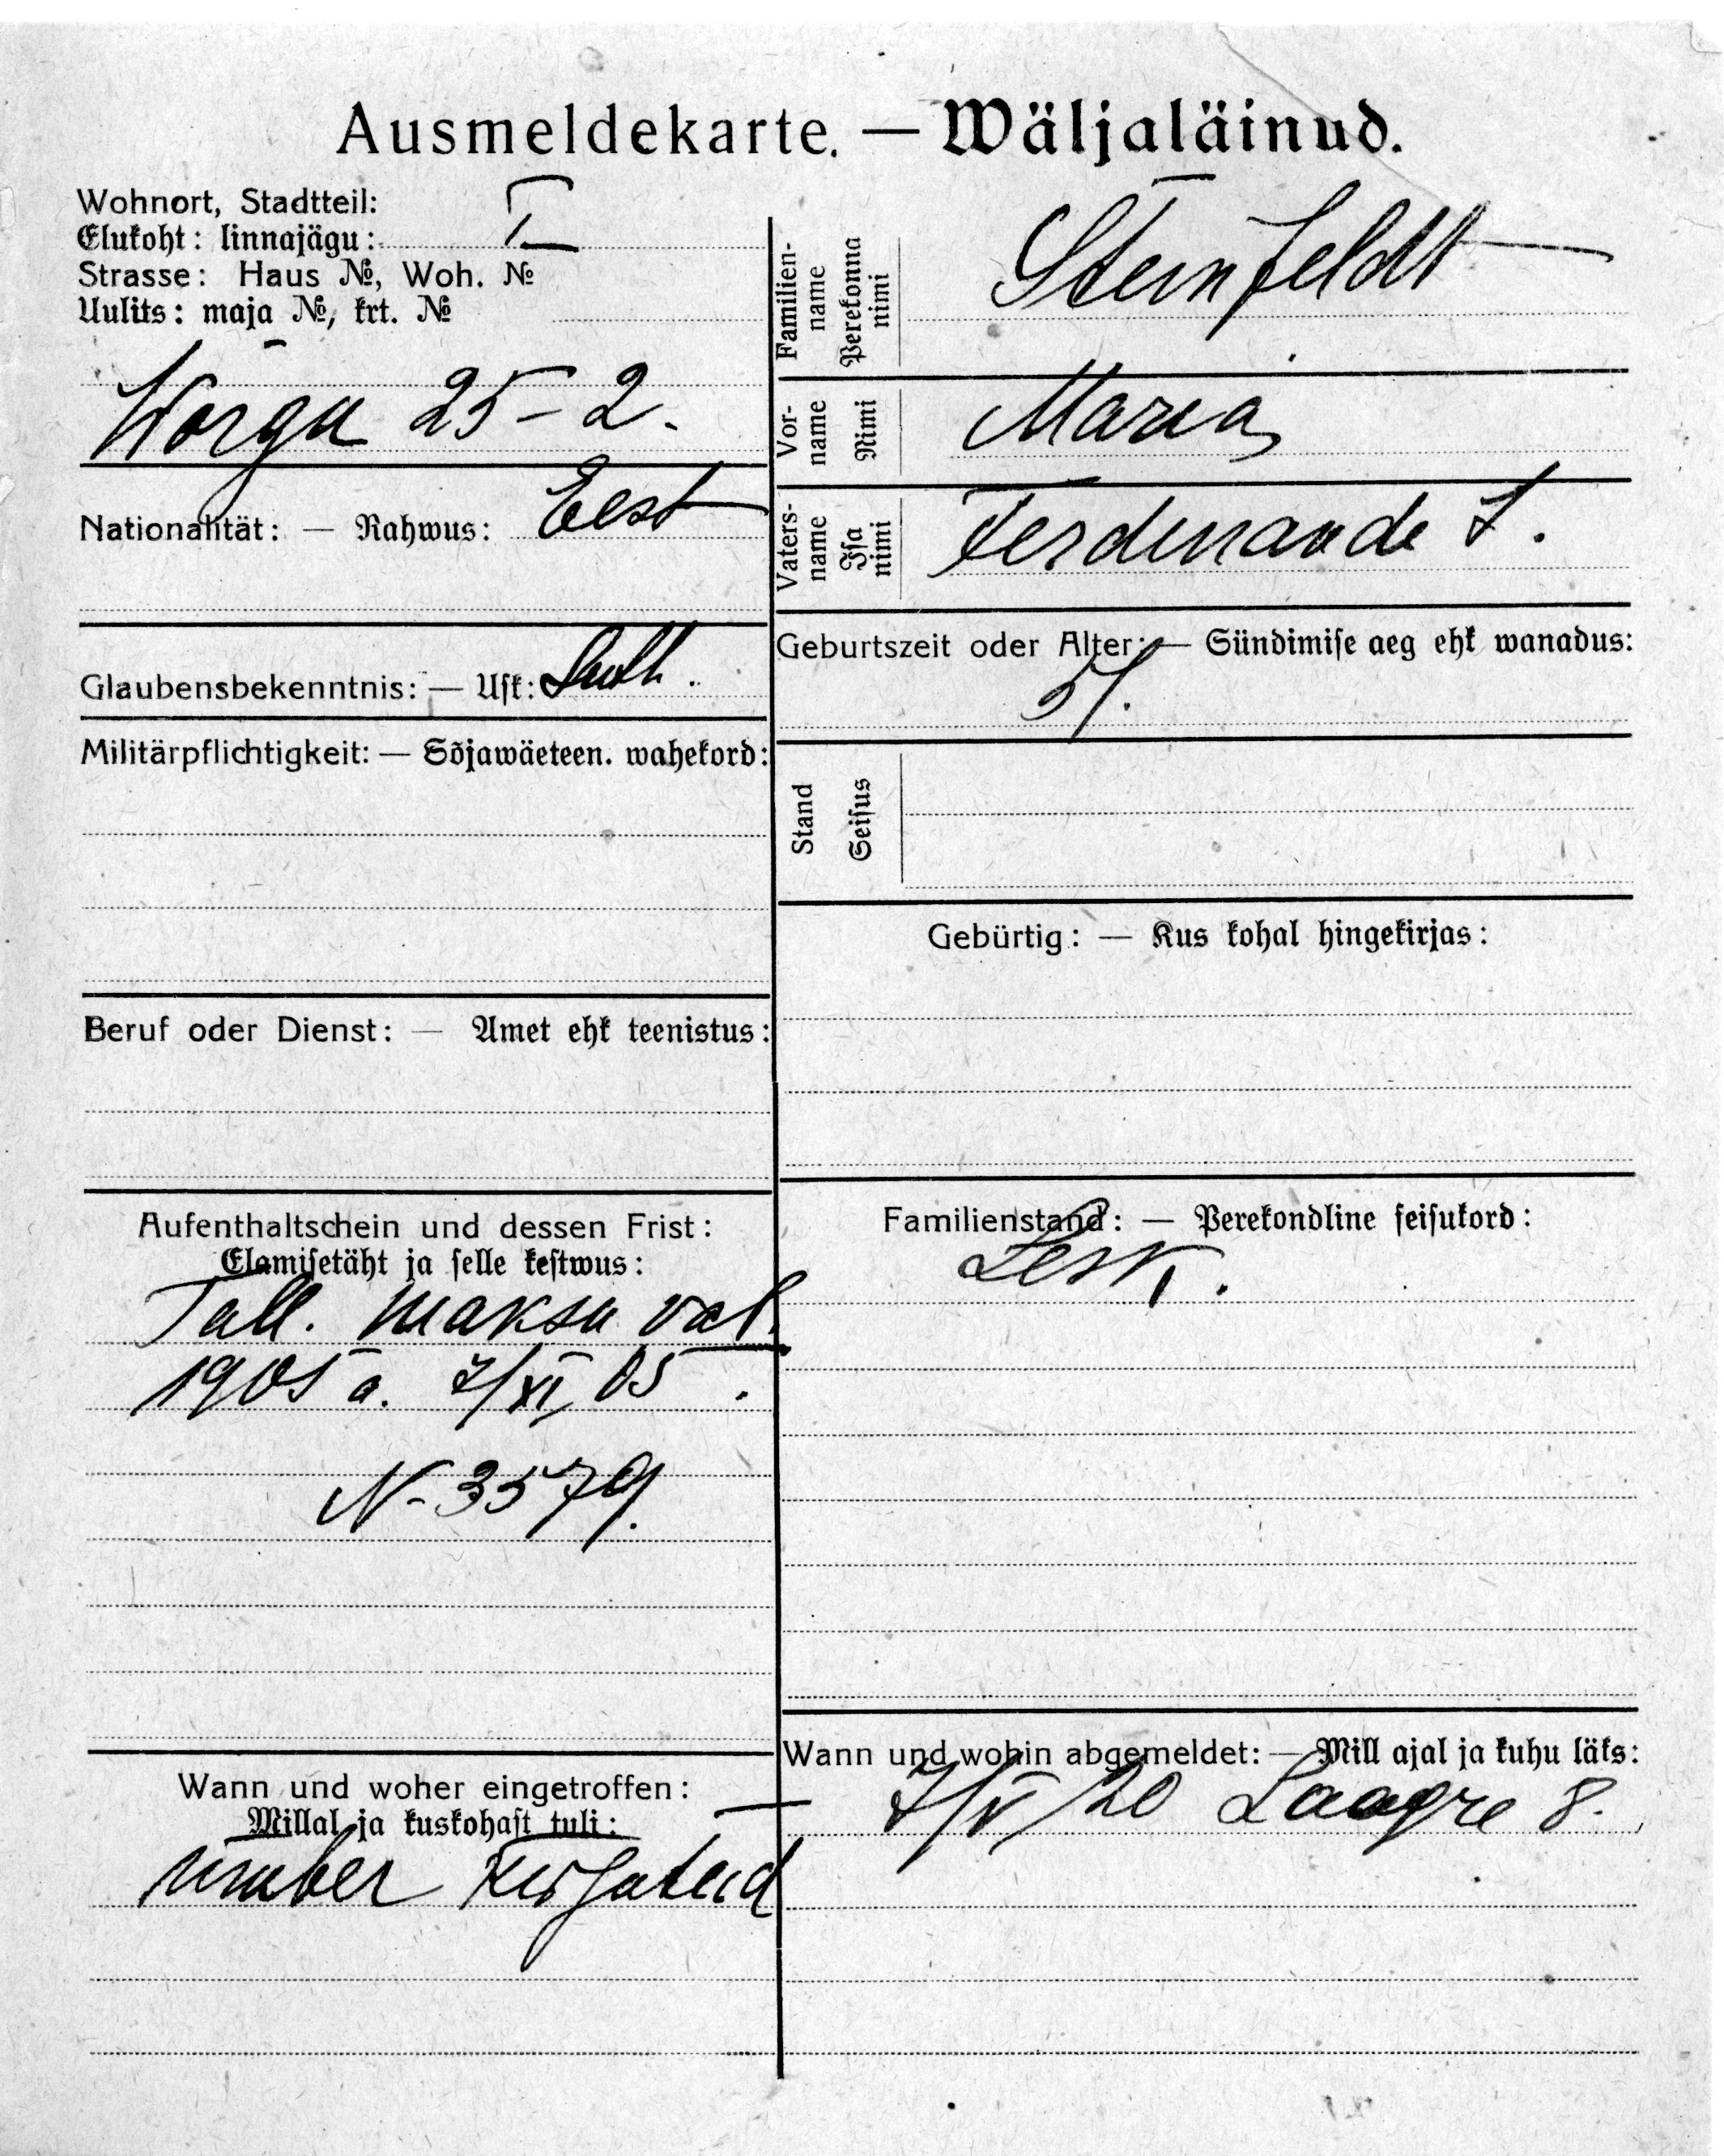 Ausmeldekarte. — Wäljaläinud.
Wohnort, Stadtteil:
Elukoht: linnajägu: I
Strasse: Haus №, Woh. №
Uulits: maja №, krt. №
Worgu 25-2.
Nationalität: — Rahwus: Eest
Glaubensbekenntnis: — Usk: Luth.
Militärpflichtigkeit: — Sõjawäeteen. wahekord:
Beruf oder Dienst: — Amet ehk teenistus:
Aufenthaltschein und dessen Frist:
Elamisetäht ja selle kestwus:
Tall. maksu val.
1905 a. 7/XI 05.
N- 3579.
Wann und woher eingetroffen:
Millal ja kuskohast tuli:
ümber kirjuteid
Familien-
name
Perekonna
nimi
Steinfeldt
Vor-
name
Nimi
Maria
Vaters-
name
Isa
nimi
Ferdinande t.
Geburtszeit oder Alter: — Sündimise aeg ehk wanadus:
51.
Stand
Seisus
Gebürtig: — Kus kohal hingekirjas:
Familienstand: — Perekondline seisukord:
Lesk.
Wann und wohin abgemeldet: — Mill ajal ja kuhu läks:
7/V/20 Laagre 8.